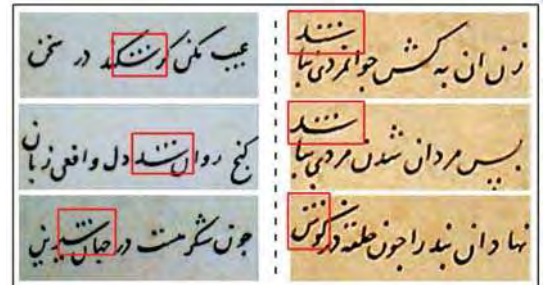 زن ان به کش جوانمردی نباشد
پس مردان شدن مردی نباشد
نهاد ان بند را جون حلقه در کوش
عیب مکن کر شکند در سخن
کنج روان شد دل وافعی زبان
جون شکر در شیرین